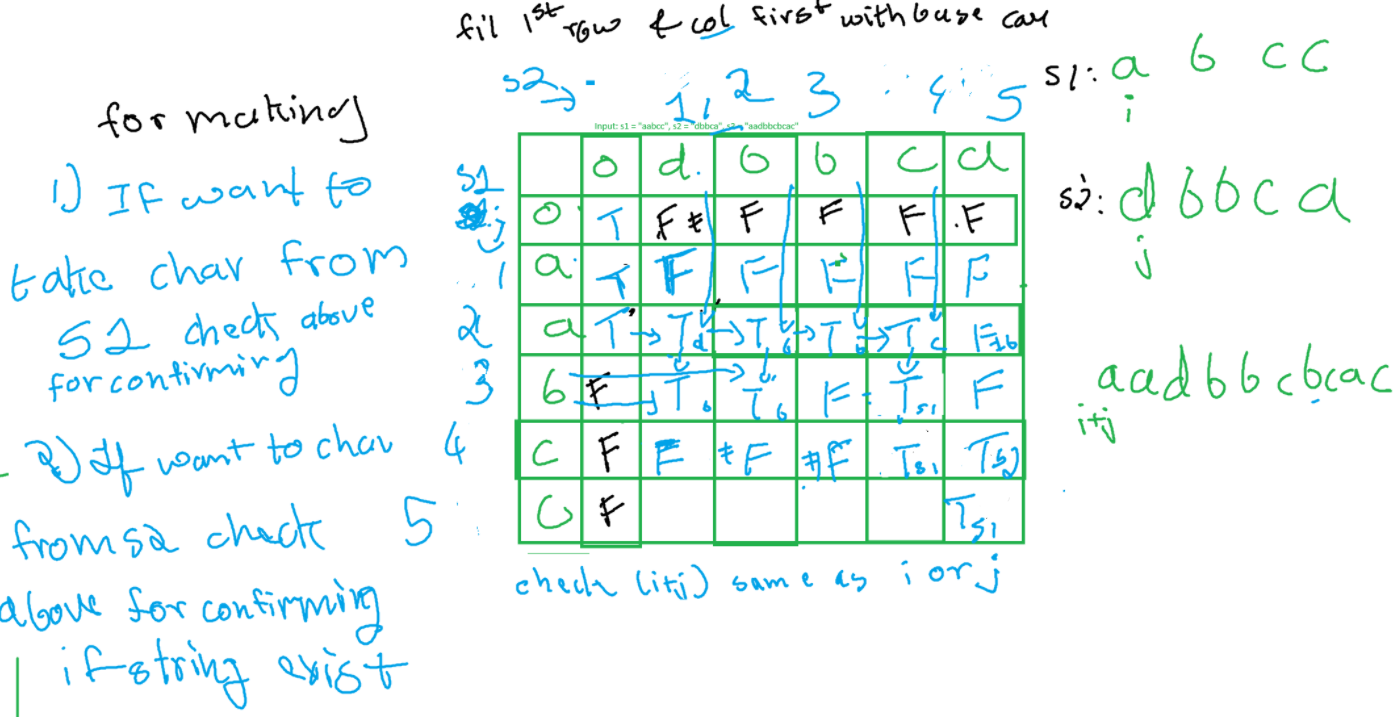 fil 1st row & col first with base case
for making
1) If want to
take char from
S1 check above
for confirming
2) If want to char
from s2 check
above for confirming
if string exist
s2 → - 1, 2 3 4 5
Input: s1 = "aabcc", s2 = "dbbca", s3 = "aadbbcbcac"
0 d. b b c a
S1
j 0 T F≠ F F F .F
1 a T F F F F F
2 a T → Td → Tb → Tb → Tc F
3 b F Tb Tb F Ts1 F
4 c F F ≠F ≠F Ts1 Ts2
5 C F Ts1
check (i+j) same as i or j
s1: a b c c
i
s2: d b b c a
j
aadbbcbcac
i+j